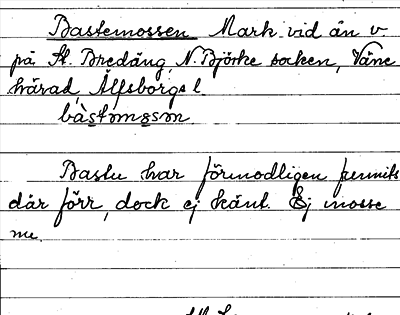 Bastemossen Mark vid ån v.
på St. Bredäng, N. Björke socken, Väne
härad, Älfsborgs l.
bàstəmɔsən
Bastu har förmodligen funnits
där förr, dock ej känt. Ej mosse
nu.